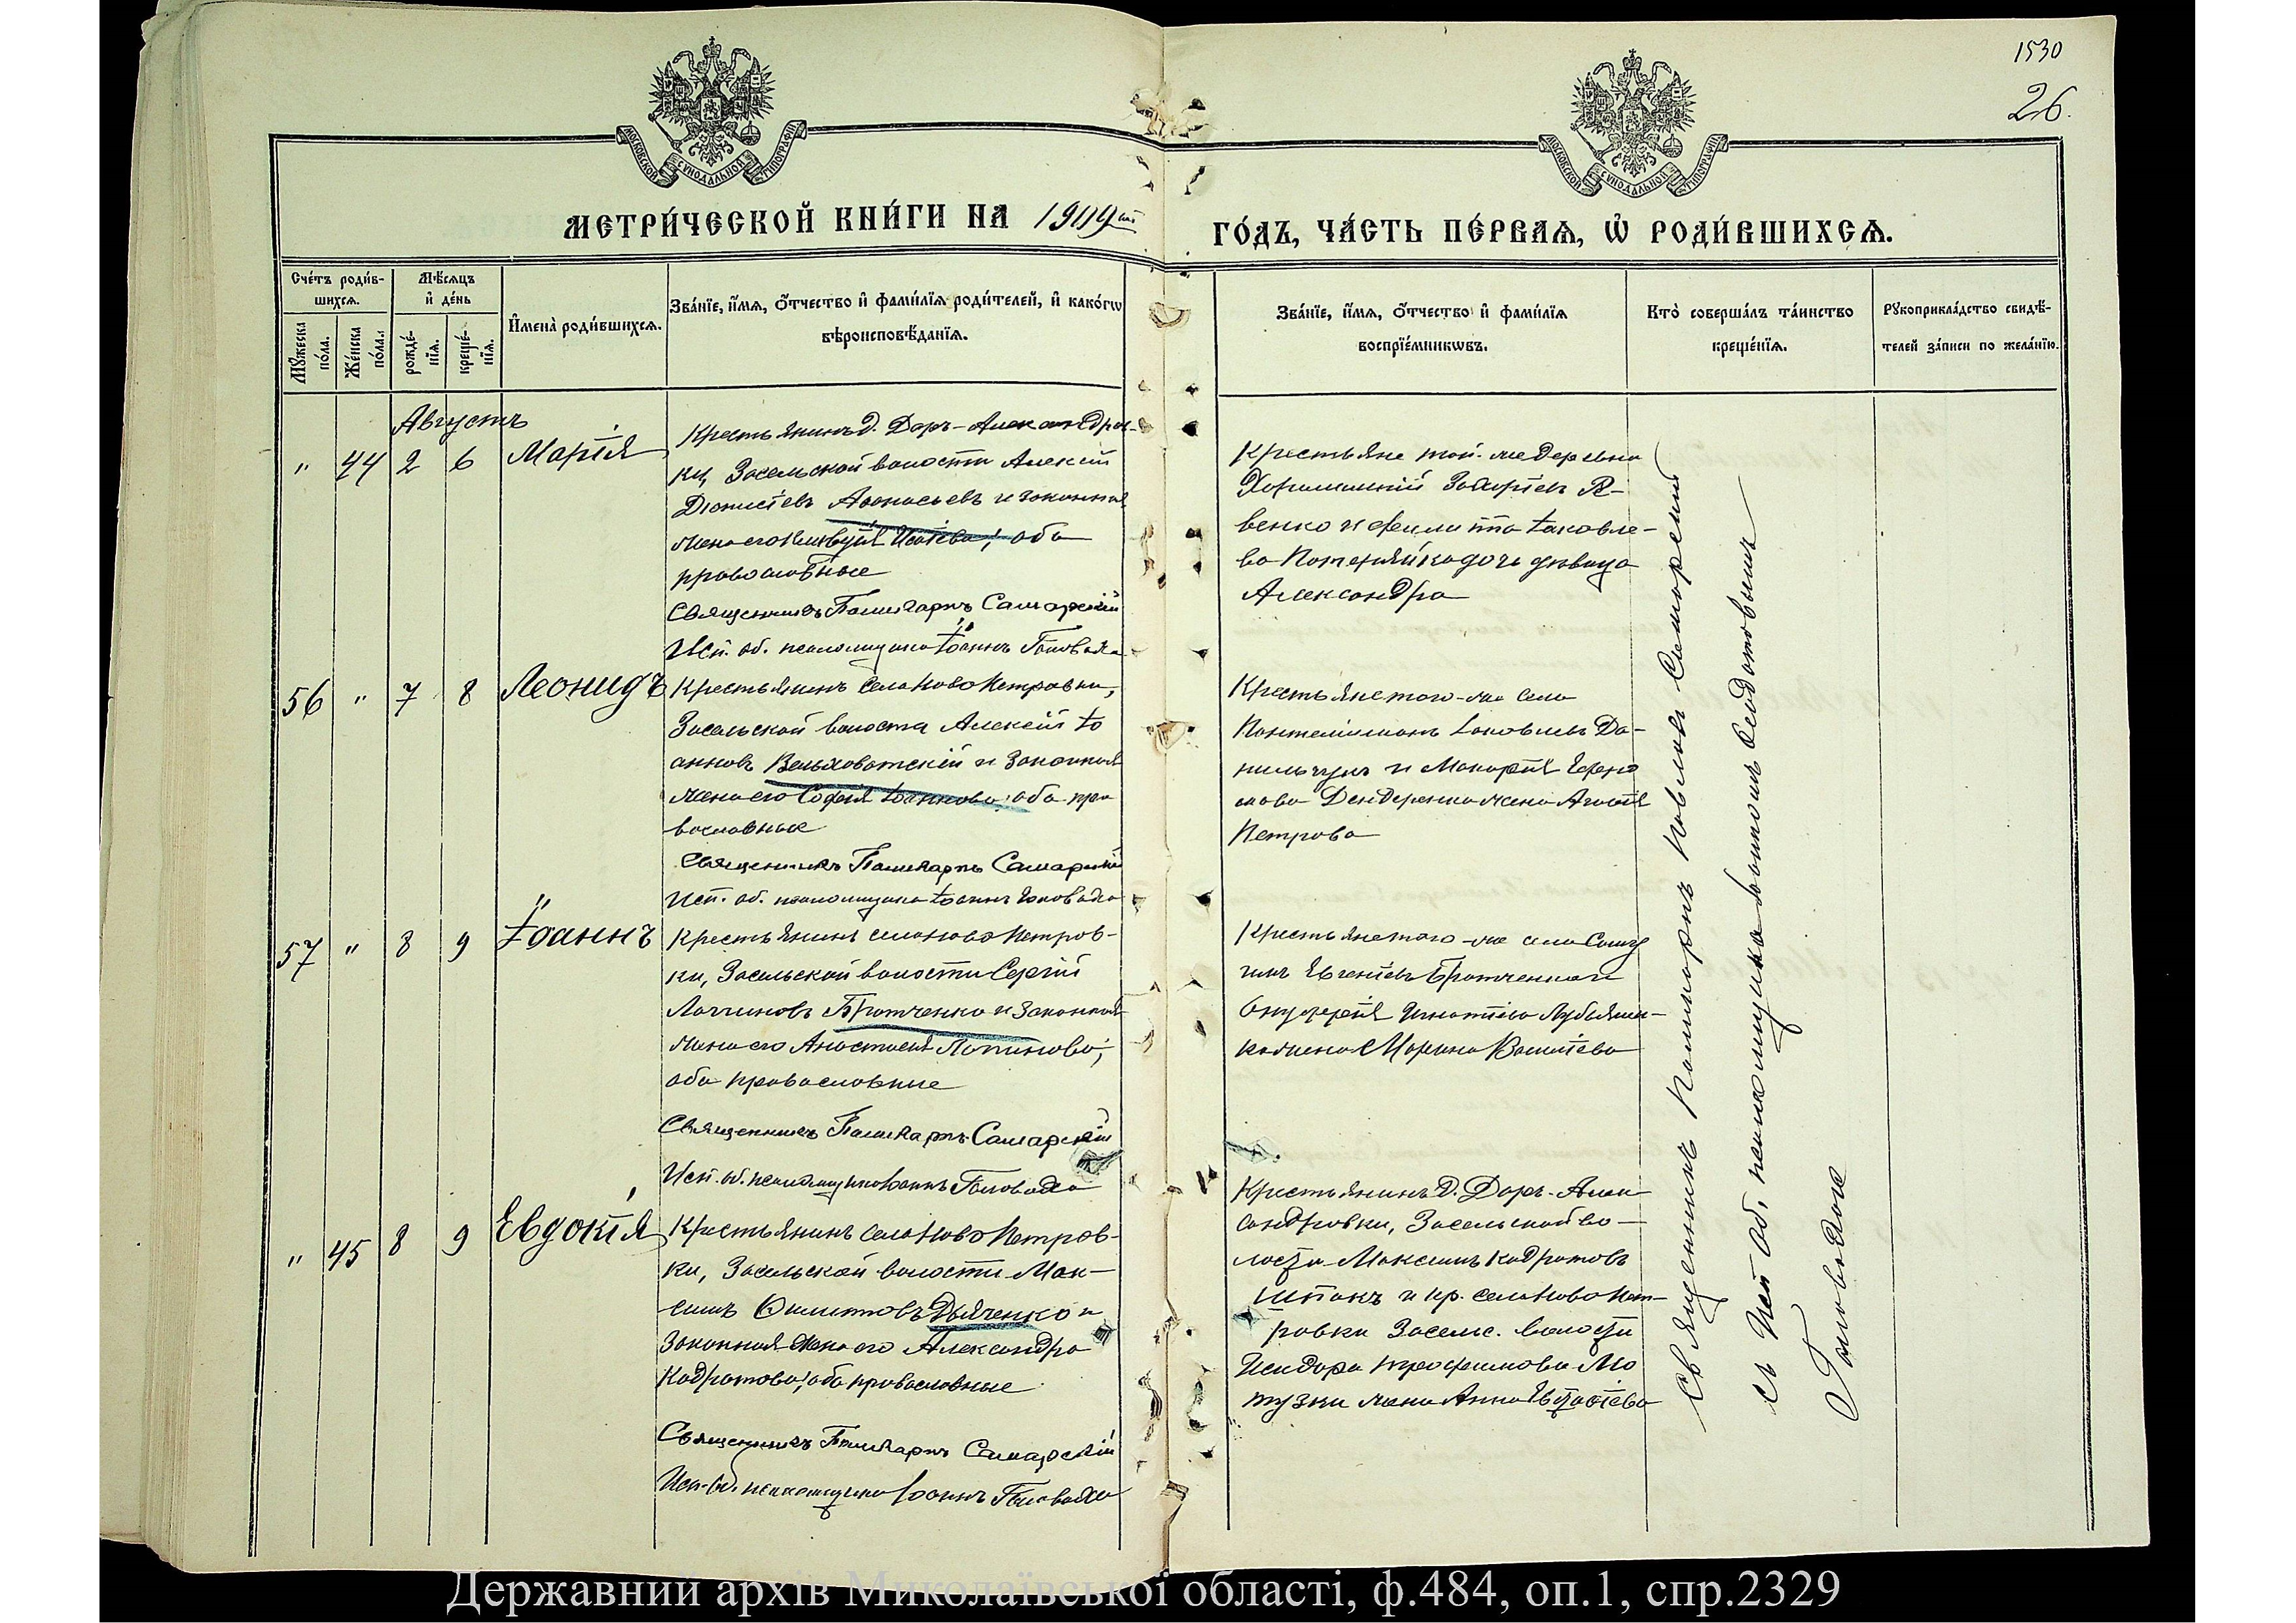 1530
26.
МОСКОВСКОЙ СѴНОДАЛЬНОЙ ТИПОГРАФІИ
МОСКОВСКОЙ СѴНОДАЛЬНОЙ ТИПОГРАФІИ
МЕТРИ́ЧЕСКОЙ КНИ́ГИ НА 1909ый ГО́ДЪ, ЧА́СТЬ ПЕ́РВАѦ, Ѡ҆ РОДИ́ВШИХСѦ.
Сче́тъ роди́в-
шихсѧ.
Мꙋ́жеска
по́ла.
Же́нска
по́ла.
Мѣ́сѧцъ
и҆ де́нь
рожде́-
нїѧ.
креще́-
нїѧ.
И҆мена̀ роди́вшихсѧ.
Зва́нїе, и҆́мѧ, ѻ҆́тчество и҆ фами́лїѧ роди́телей, и҆ како́гѡ
вѣроисповѣ́данїѧ.
Зва́нїе, и҆́мѧ, ѻ҆́тчество и҆ фами́лїѧ
воспрїе́мникѡвъ.
Кто̀ соверша́лъ та́инство
креще́нїѧ.
Рꙋкоприкла́дство свидѣ́-
телей за́писи по жела́нїю.
Августъ
" 44 2 6 Марія
Крестьянинъ д. Даръ-Александров-
ки, Засельской волости Алексій
Діонисіевъ Афонасьевъ и законная
жена его Исаіева; оба
православные
Священникъ Поликарпъ Самарскій
Исп. об. псаломщика Іоаннъ Головадко
Крестьяне той-же деревни
Захаріевъ Я-
венко и Іаковле-
ва дочь дѣвица
Александра
56 " 7 8 Леонидъ
Крестьянинъ села Новопетровки,
Засельской волости Алексій Іо
анновъ Вельховатскій и законная
жена его Софія Іоаннова; оба пра
вославные
Священникъ Поликарпъ Самарскій
Исп. об. псаломщика Іоаннъ Головадко
Крестьяне того-же села
Пантелеимонъ Іаковлевъ Да-
нильчукъ и Макарія Ефре
мова Дендеренко жена Агафія
Петрова
57 " 8 9 Іоаннъ
Крестьянинъ села Новопетров-
ки, Засельской волости Сергій
Логгиновъ Братченко и законная
жена его Анастасія Логинова;
оба православные
Священникъ Поликарпъ Самарскій
Исп. об. псаломщика Іоаннъ Головадко
Крестьяне того-же села
Евгеніевъ Братченко и
Онуфрія Игнатіева
жена Марина Василіева
" 45 8 9 Евдокія
Крестьянинъ села Новопетров-
ки, Засельской волости Мак-
симъ Филиповъ Дьяченко и
законная жена его Александра
Кадратова; оба православные
Священникъ Поликарпъ Самарскій
Исп. об. псаломщика Іоаннъ Головадко
Крестьянинъ д. Даръ-Алек
сандровки, Засельской во-
лости Максимъ Кадратовъ
Шпакъ и кр. села Новопет-
ровки Засельс. волости
Исидора Трофимова Мо
тузки жена Анна Евстафіева
Священникъ Поликарпъ Павловъ Самарскій
съ Исп. об. псаломщика Іоанномъ Ѳеодотовымъ
Головадкою
Державний архів Миколаївської області, ф.484, оп.1, спр.2329